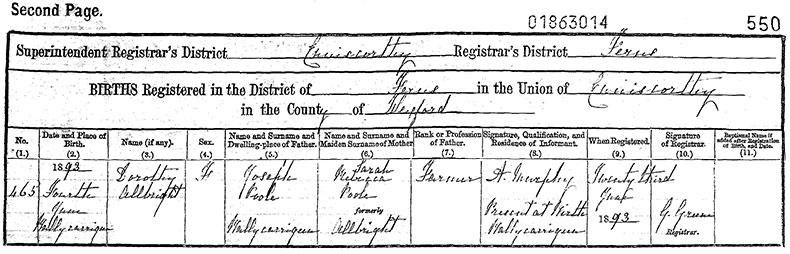 Second Page.
01863014 550
Superintendent Registrar's District Enniscorthy Registrar's District Ferns
BIRTHS Registered in the District of Ferns in the Union of Enniscorthy
in the County of Wexford
No. (1.) Date and Place of Birth. (2.) Name (if any). (3.) Sex. (4.) Name and Surname and Dwelling-place of Father. (5.) Name and Surname and Maiden Surname of Mother (6.) Rank or Profession of Father. (7.) Signature, Qualification, and Residence of Informant. (8.) When Registered. (9.) Signature of Registrar. (10.) Baptismal Name if added after Registration of Birth, and Date. (11.)
1893 Dorothy F Joseph Sarah Rebecca Farmer A. Murphy Twenty third
465 Fourth Allbright Poole Poole June
June formerly Present at Birth 1893 G. Green
Ballycarrigeen Ballycarrigeen Allbright Ballycarrigeen Registrar.